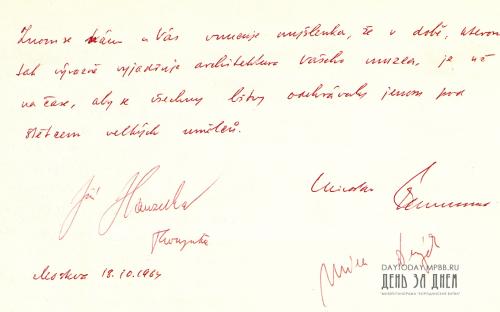 Znovu se nám u Vás vnucuje myšlenka, že v době, kterou
tak výrazně vyjadřuje architektura Vašeho muzea, je už
na čase, aby se všechny bitvy odehrávaly jenom pod
štětcem velkých umělců.
Jiří Hanzelka
Miroslav Zikmund
Moskva 18.10.1964
DAYTODAY.MPBB.RU
ДЕНЬ ЗА ДНЕМ